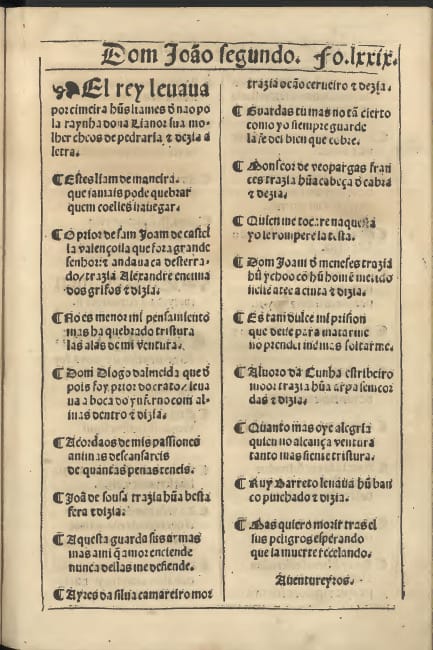 Dom João segundo. Fo.lxxix.
El rey leuaua
por cimeira hũs liames ð nao po
la raynha dona Lianor sua mo
lher cheos de pedraria ⁊ dezia a
letra.
¶ Estes liam de maneira.
que jamais pode quebrar
quem coelles nauegar.
¶ O prior de sam Joam de castel
la valençoila que fora grande
senhor: ⁊ andaua ca desterra-
do/ trazia Alexandre encima
dos grifos ⁊ dizia.
¶ No es menor mi pensamiento
mas ha quebrado tristura
las alas de mi ventura.
¶ Dom Diogo dalmeida que ð
pois foy prior do crato/ leua
ua a boca do ynferno com al-
mas dentro ⁊ dizia.
¶ Acordaos de mis passiones
animas descansareis
de quantas penas teneis.
¶ Joã de sousa trazia hũa besta
fera ⁊ dizia.
¶ Aquesta guarda sus armas
mas a mi q̃ amor enciende
nunca dellas me defiende.
¶ Ayres da silua camareiro mor
trazia o cão cerueiro ⁊ dezia.
¶ Guardas tu mas no tã cierto
como yo siempre guarde
la fe del bien que cobre.
¶ Monseor de veopargas fran
ces trazia hũa cabeça ð cabra
⁊ dezia.
¶ Quien me tocare naquesta
yo le rompere la testa.
¶ Dom Joam ð meneses trazia
hũ ycho cõ hũ homẽ metido
nelle ate a cinta ⁊ dizia.
¶ Es tam dulce mi prision
que deue para matarme
no prender me mas soltarme.
¶ Aluoro da Cunha estribeiro
moor trazia hũa arpa sem cor
das ⁊ dizia.
¶ Quanto mas oye alegria
quien no alcança ventura
tanto mas siente tristura.
¶ Ruy Barreto leuaua hũ bar
co pinchado ⁊ dizia.
¶ Mas quiero morir tras el
sus peligros esperando
que la muerte recelando.
Auentureyros.